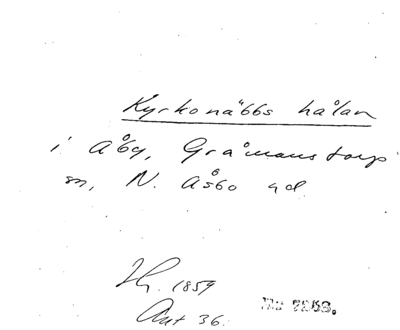 Kyrkonäbbs hålan
i Åby, Gråmanstorps
sn, N. Åsbo hd
1859
Ant 36.